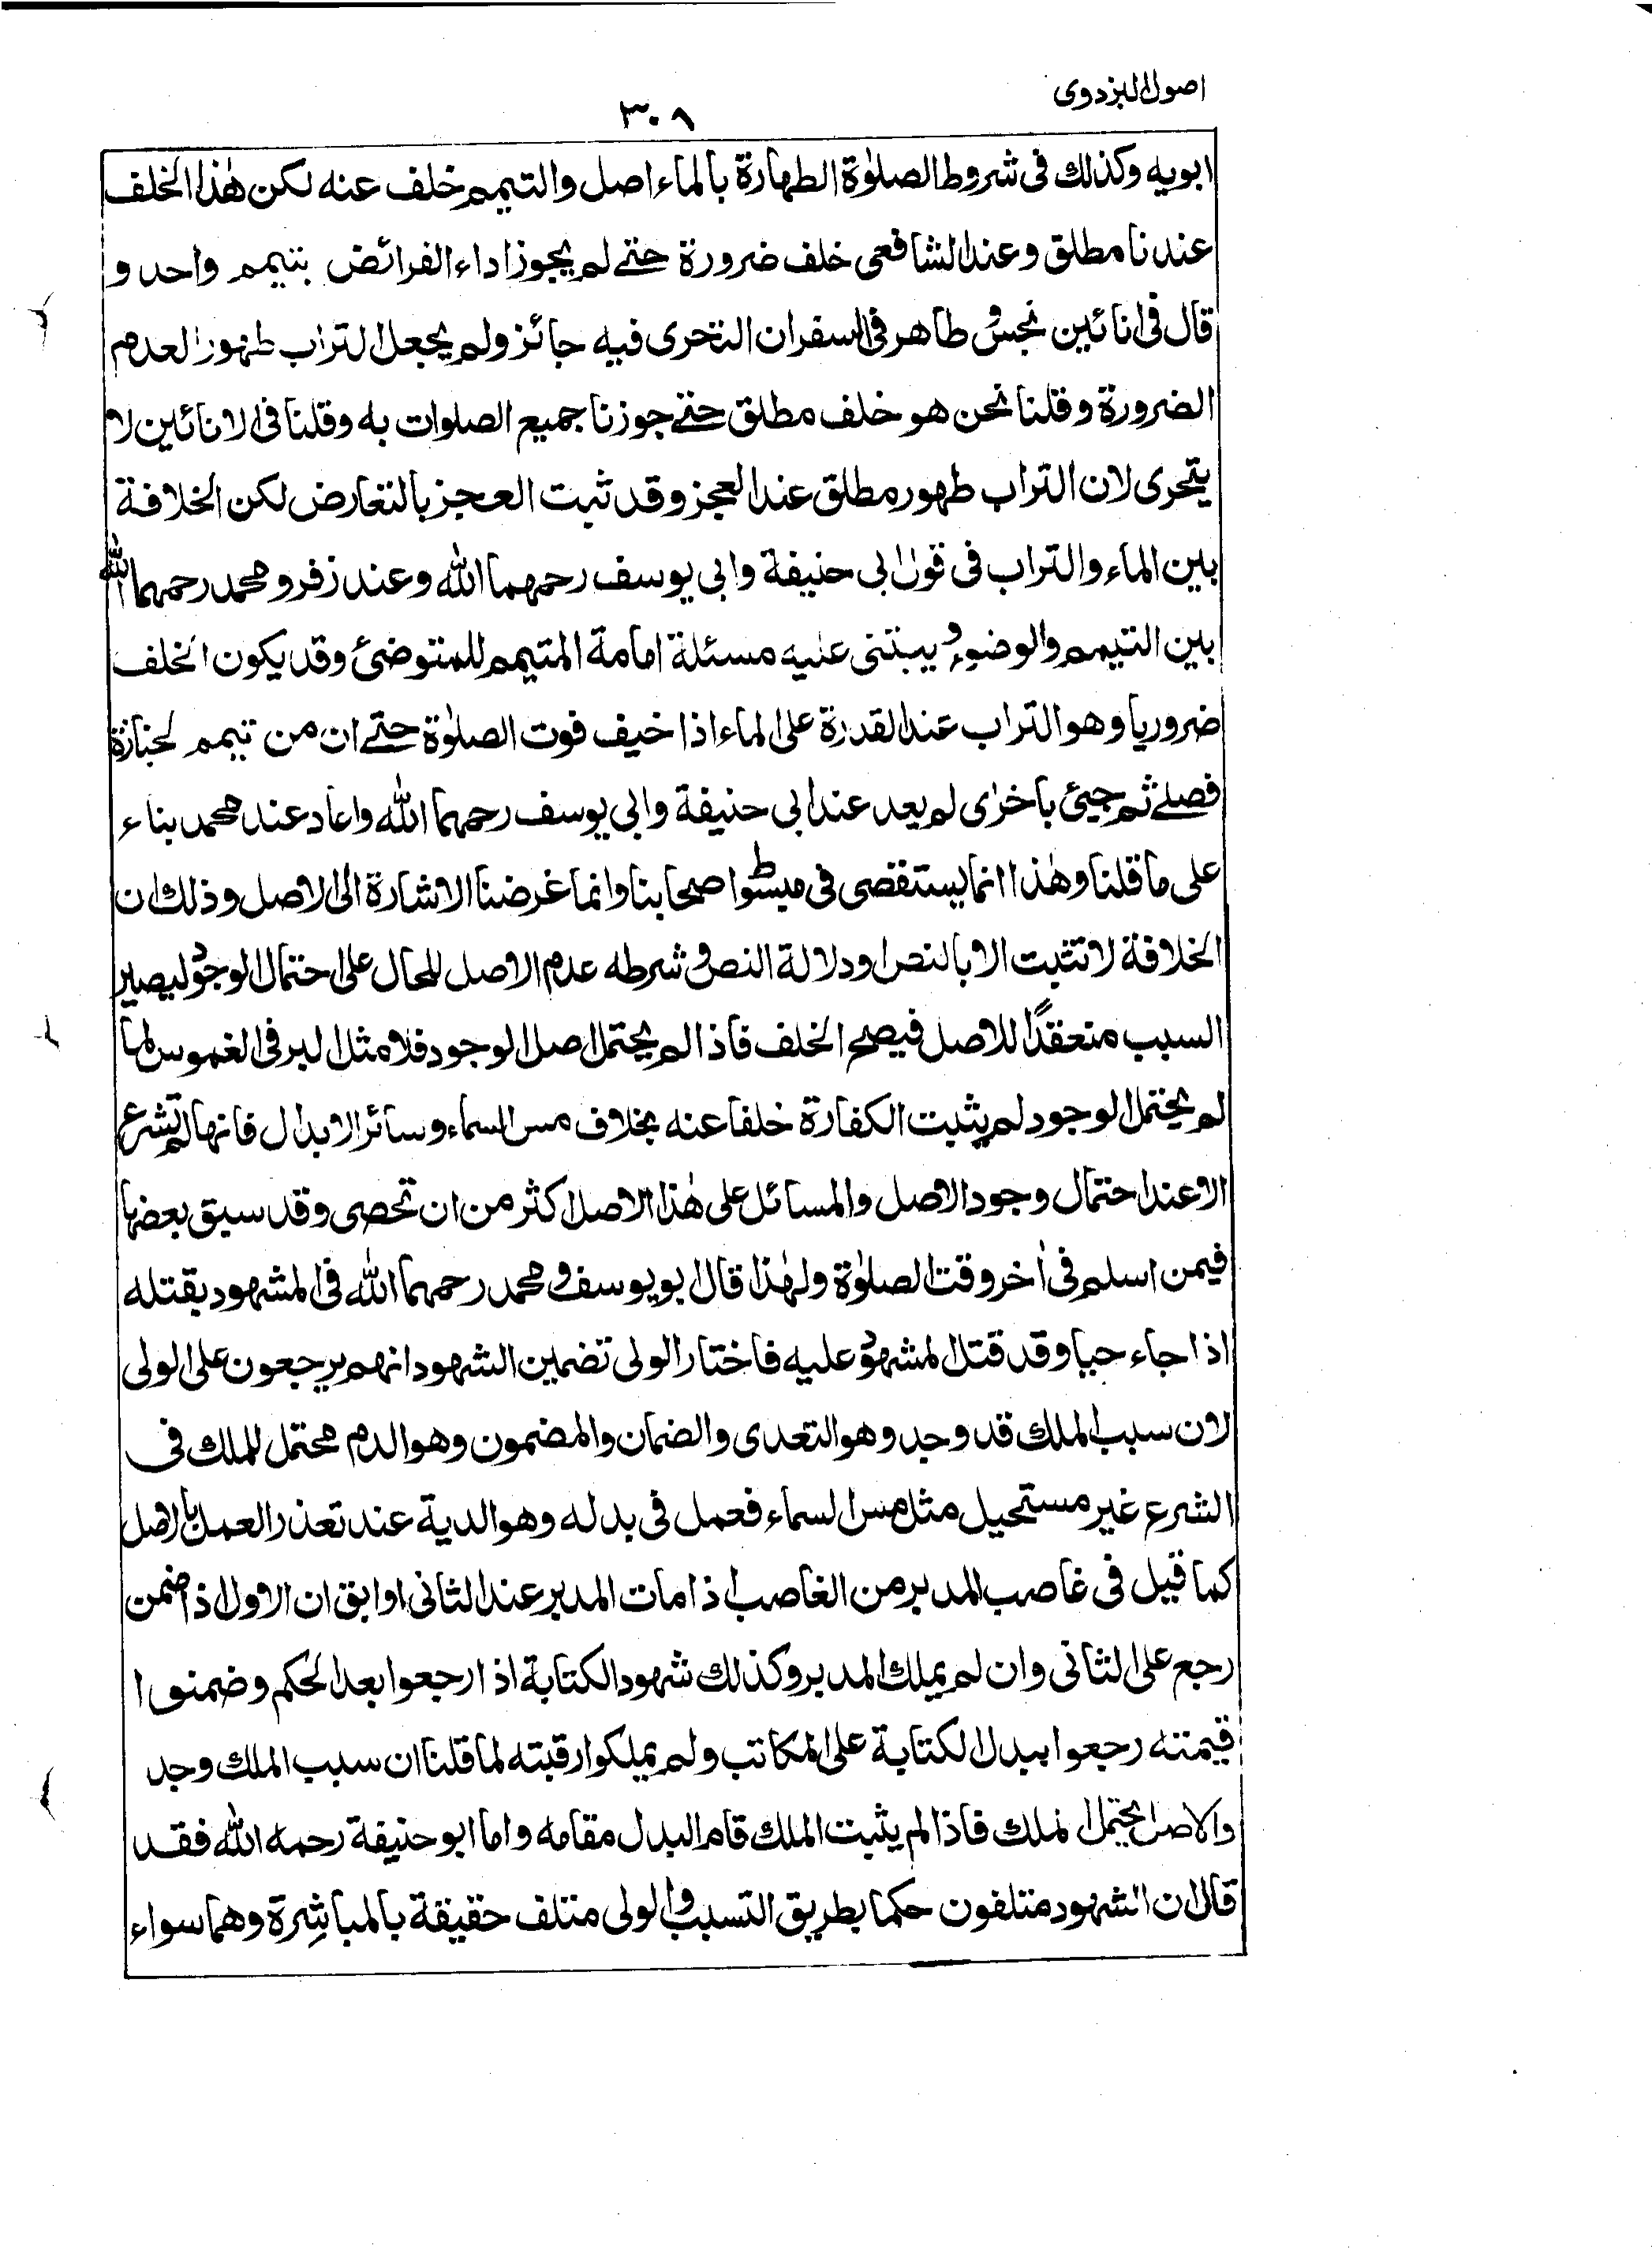 اصول البزدوی
٣٠٨
ابويه وكذلك فی شروط الصلوٰة الطهارة بالماء اصل والتيمم خلف عنه لكن هٰذا الخلف
عندنا مطلق وعند الشافعی خلف ضرورة حتے لم يجوز اداء الفرائض بتيمم واحد و
قال فی انائين نجس و طاهر فی السفر ان التحری فيه جائز ولم يجعل التراب طهورا لعدم
الضرورة وقلنا نحن هو خلف مطلق حتے جوزنا جميع الصلوات به وقلنا فی الانائين لا
يتحری لان التراب طهور مطلق عند العجز وقد ثبت العجز بالتعارض لكن الخلافة
بين الماء والتراب فی قول ابی حنيفة وابی يوسف رحمهما الله وعند زفر ومحمد رحمهما الله
بين التيمم والوضوء و يبتنی عليه مسئلة امامة المتيمم للمتوضئ وقد يكون الخلف
ضروريا وهو التراب عند القدرة علی الماء اذا خيف فوت الصلوٰة حتے ان من تيمم لجنازة
فصلے ثم جیئ باخرٰی لم يعد عند ابی حنيفة وابی يوسف رحمهما الله واعاد عند محمد بناء
علی ما قلنا وهٰذا انما يستقصی فی مبسوط اصحابنا وانما غرضنا الاشارة الی الاصل وذلك ان
الخلافة لا تثبت الا بالنص او دلالة النص و شرطه عدم الاصل للحال علی احتمال الوجود ليصير
السبب منعقدًا للاصل فيصح الخلف فاذا لم يحتمل اصل الوجود فلا مثل البر فی الغموس لما
لم يحتمل الوجود لم يثبت الكفارة خلفا عنه بخلاف مس السماء وسائر الابدال فانها لم تشرع
الا عند احتمال وجود الاصل والمسائل علی هٰذا الاصل اكثر من ان تحصی وقد سبق بعضها
فيمن اسلم فی اٰخر وقت الصلوٰة ولهٰذا قال ابو يوسف و محمد رحمهما الله فی المشهود بقتله
اذا جاء حيا وقد قتل المشهود عليه فاختار الولی تضمين الشهود انهم يرجعون علی الولی
لان سبب الملك قد وجد وهو التعدی والضمان والمضمون وهو الدم محتمل للملك فی
الشرع غير مستحيل مثل مس السماء فعمل فی بدله وهو الدية عند تعذر العمل بالاصل
كما قيل فی غاصب المدبر من الغاصب اذا مات المدبر عند الثانی او ابق ان الاول اذا ضمن
رجع علی الثانی وان لم يملك المدبر وكذلك شهود الكتابة اذا رجعوا بعد الحكم وضمنوا
قيمته رجعوا ببدل الكتابة علی المكاتب ولم يملكوا رقبته لما قلنا ان سبب الملك وجد
والاصل يحتمل الملك فاذا لم يثبت الملك قام البدل مقامه واما ابو حنيفة رحمه الله فقد
قال ان الشهود متلفون حكما بطريق التسبب والولی متلف حقيقة بالمباشِرة وهما سواء